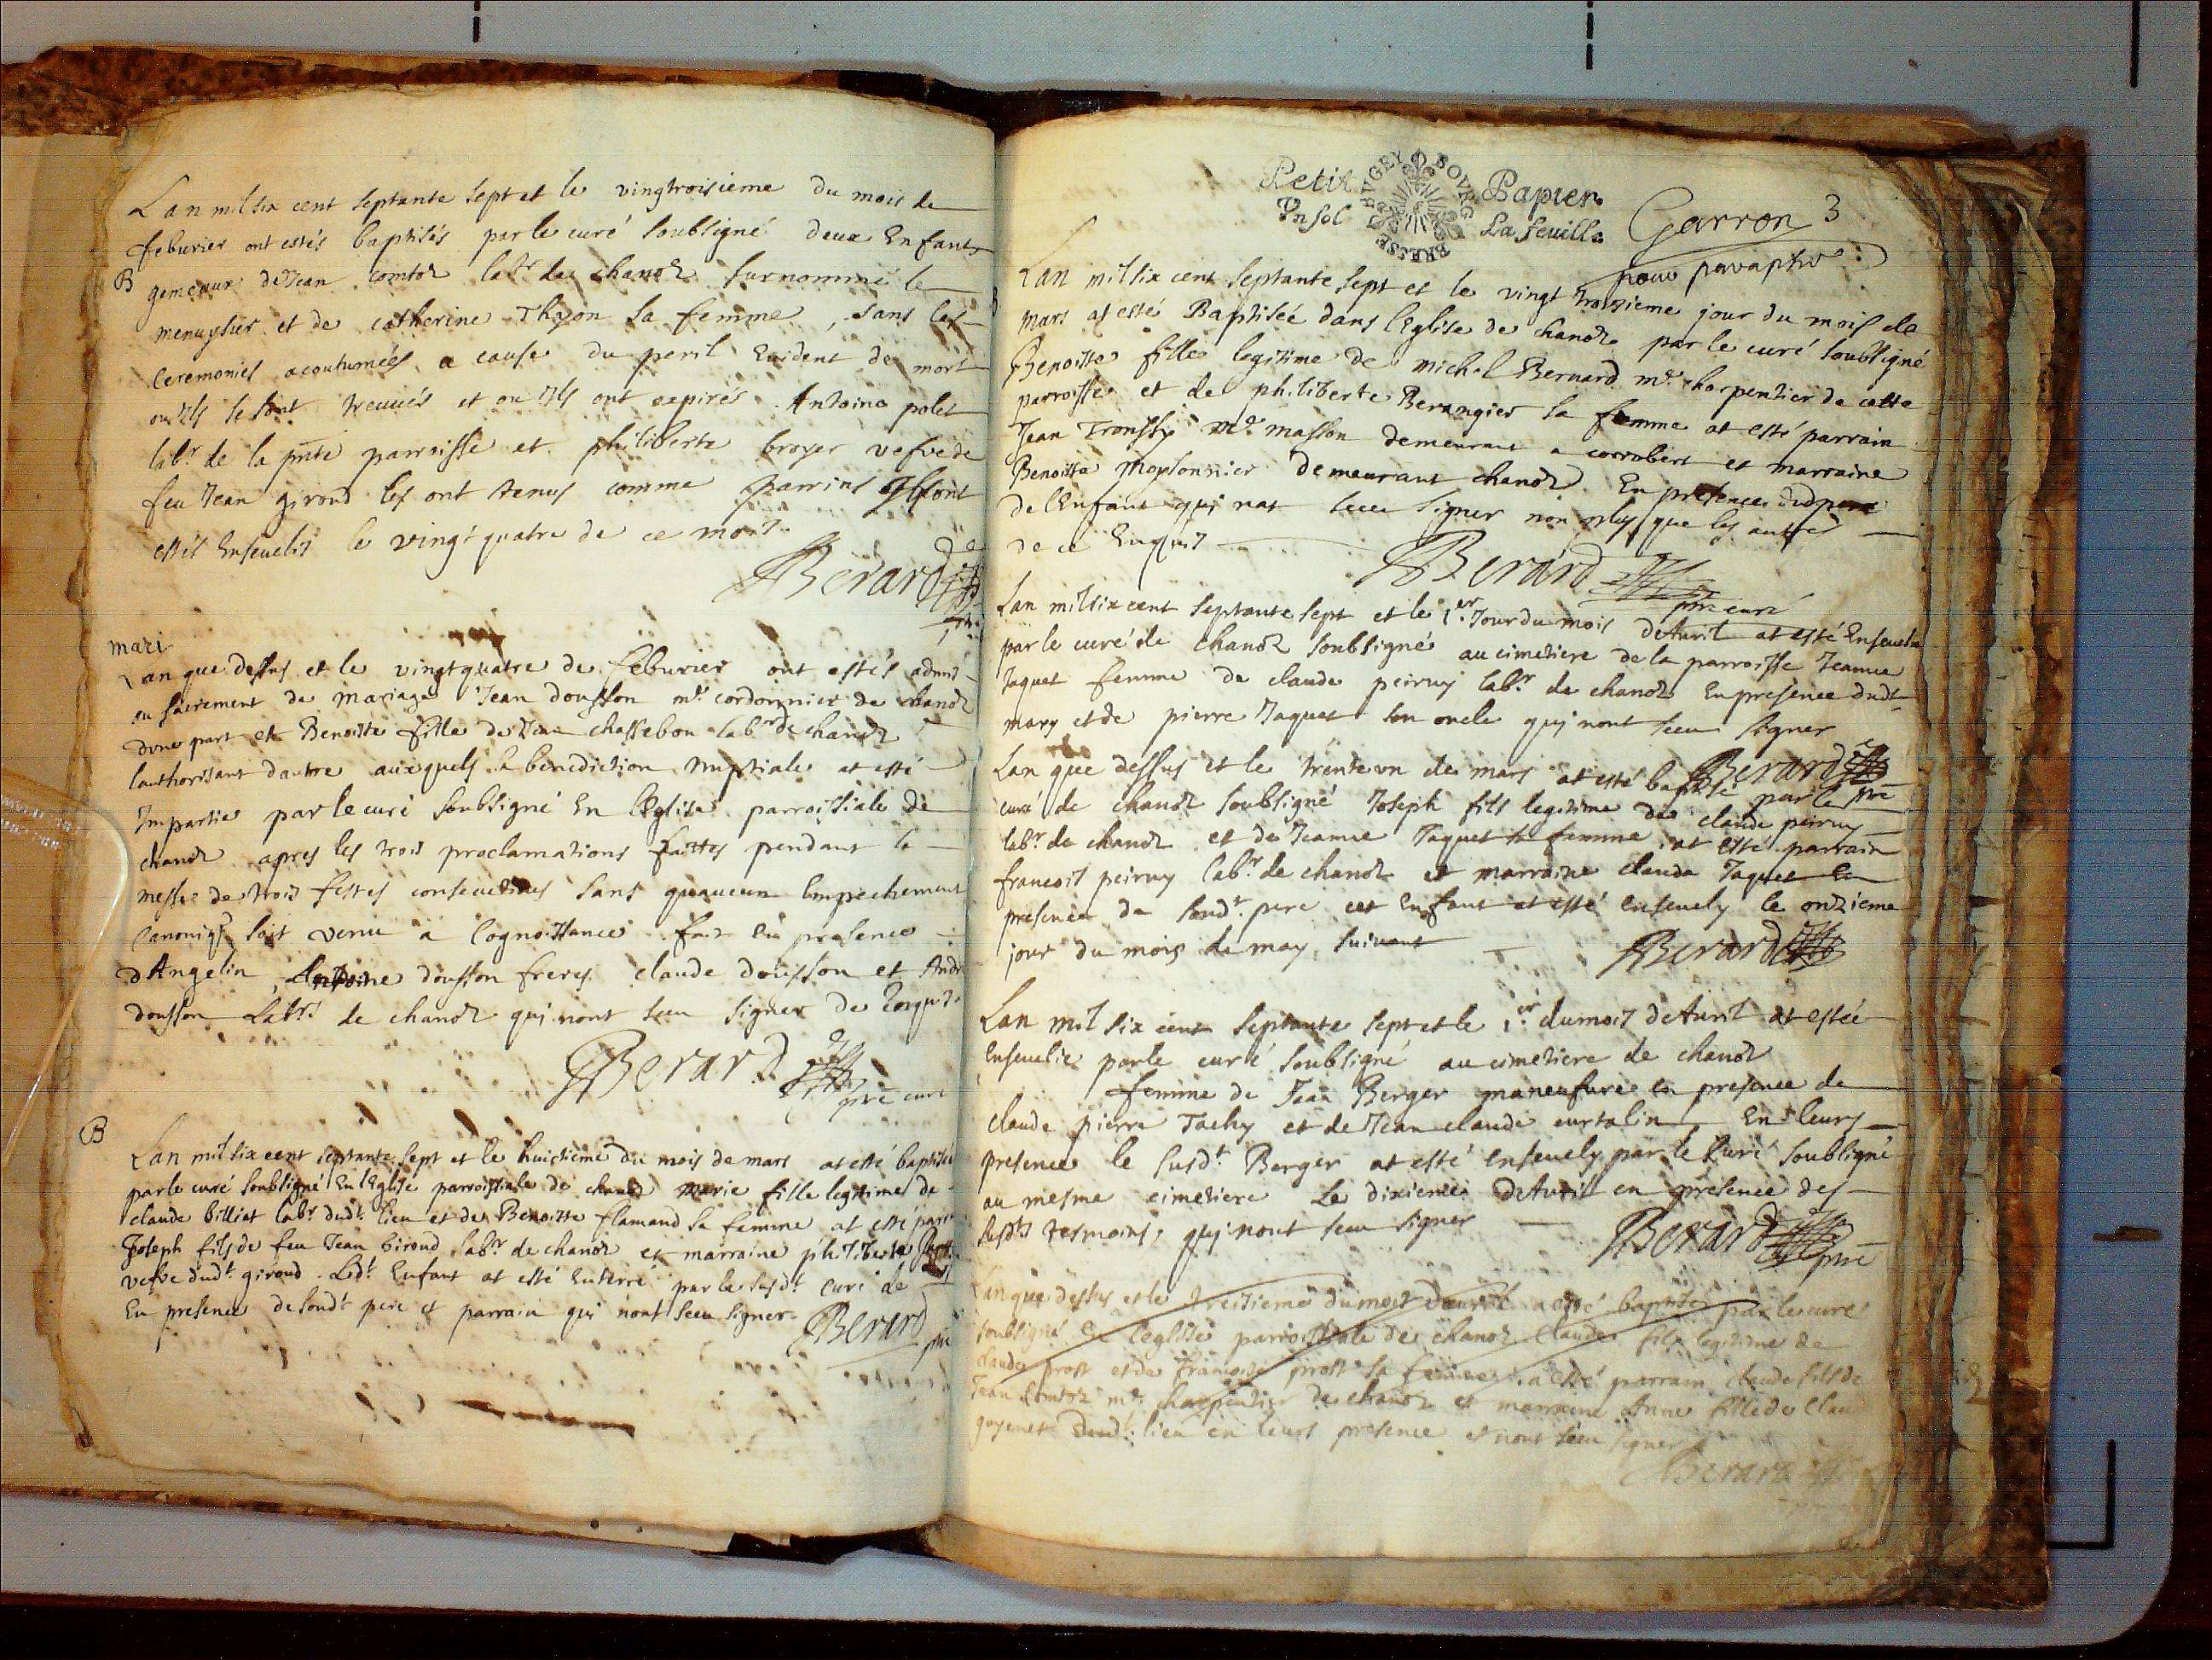 Lan mil six cent septante sept et le vingtroisieme du mois de
feburier ont estés baptisés par le curé soubsigné deux Enfants
B gemeaux de Jean comtoz labr de chanoz surnommé le
menuysier et de catherine Thyon sa femme, sans les
Ceremonies acoutumées a cause du peril Euident de mort
ou Ils se sont treuués et ou Ils ont expirés. Antoine polet
labr. de la pnte parroisse et philiberte broyer vefve de
feu Jean girond les ont tenus comme parrins Ils sont
estés Enseuelis le vingt quatre de ce mois.
Berard
mari
Lan que dessus et le vingt quatre de feburier ont estés admis
au sacrement de mariage Jean dousson mr cordonnier de chanoz
dune part et Benoitte fille de Jean chassebou labr de chanoz
lauthorisant dautre auxquels la benediction nuptiale at esté
Impartie par le curé soubsigné En leglise parroissiale de
chanoz apres les trois proclamations faittes pendant la
messe de trois festes consecutives sans quaucun Empechement
Canoniq soit venu a Cognoissance fait En presence
dAngelin, Antoine dousson freres claude dousson et André
dousson Labrs de chanoz qui nont sceu signer de Enquis
Berard
pbre curé
B
Lan mil six cent septante sept et le huictieme du mois de mars at esté baptisée
par le curé soubsigné En leglise parroissiale de chanoz marie fille legitime de
claude billiat labr dudt lieu et de Benoitte flamand sa femme at esté parrain
Joseph fils de feu Jean Girond labr de chanoz et marraine philiberte
vefve dudt girond. Ledt Enfant at esté Enterré par le susdt Curé le
En presence de sondt pere et parrain qui nont sceu signer
Berard pbre
Petit Papier
Un sol La feuille
BRESSE BVGEY
Garron 3
pour paraphe
Lan mil six cent septante sept et le vingt troizieme jour du mois de
mars at esté Baptisée dans lEglise de chanoz par le curé soubsigné
Benoitte fille legitime de michel Bernard mr. charpentier de cette
parroisse et de philiberte Berangier sa femme at esté parrain
Jean Tronssy mr masson demeurant a corrobert et marraine
Benoitta moyssonnier demeurant chanoz En presence dud pere
de lEnfant qui nat sceu signer non plus que les autres
de ce Enquis
Berard
pbre curé
Lan mil six cent septante sept et le 1er. Jour du mois dAuril at esté Enseuelie
par le curé de chanoz soubsigné au cimetiere de la parroisse Jeanne
Jaquet femme de claude peiruy labr. de chanoz En presence dudt
mary et de pierre Jaquet son oncle qui nont sceu signer
Berard pbre
Lan que dessus et le trente un de mars at esté baptisé par le
curé de chanoz soubsigné Joseph fils legitime de claude peiruy
labr. de chanoz et de Jeanne Jaquet sa femme at esté parrain
francois peiruy labr. de chanoz et marraine claude Jaquet En
presence de sondt. pere cet Enfant at esté enseuely le onzieme
jour du mois de may suivant
Berard
Lan mil six cent septante sept et le 1er. du mois dAuril at estée
Enseuelie par le curé soubsigné au cimetiere de chanoz
femme de Jean Berger maneufure en presence de
claude pierre Tachy et de Jean claude curtalin En leurs
presence le susdt. Berger at esté enseuely par le Curé soubsigné
au mesme cimetiere Le dixieme dAuril en presence des
susdts tesmoins, qui nont sceu signer
Berard pbre
Lan que dessus et le treizieme du mois dauril a esté baptisé par le curé
soubsigné En leglise parroissiale de chanoz Claude fils legitime de
claude prost et de francoise prost sa femme a esté parrain claude fils de
Jean Comtoz mr. charpentier de chanoz et marraine Anne fille de Claude
goyenet dudt. lieu en leurs presence et nont sceu signer
Berard